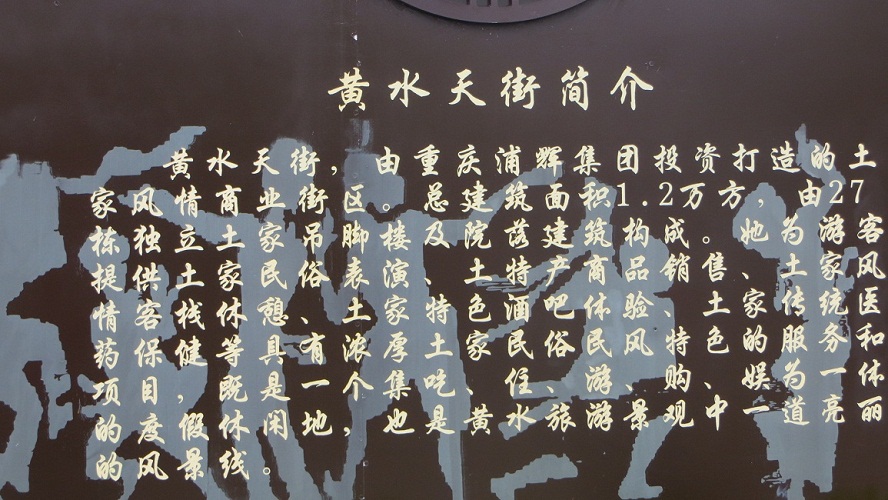 黄水天街简介
黄水天街,由重庆浦辉集团投资打造的土
家风情商业街区。总建筑面积1.2万方,由27
栋独立土家吊脚楼及院落建筑构成。她为游客
提供土家民俗表演、土特产商品销售、土家风
情客栈休憩、土家特色酒吧体验、土家传统医
药保健等具有浓厚土家民俗风特色的服务和
项目,既是一个集吃、住、游、购、娱为一体
的度假休闲地,也是黄水旅游景观中一道亮丽
的风景线。